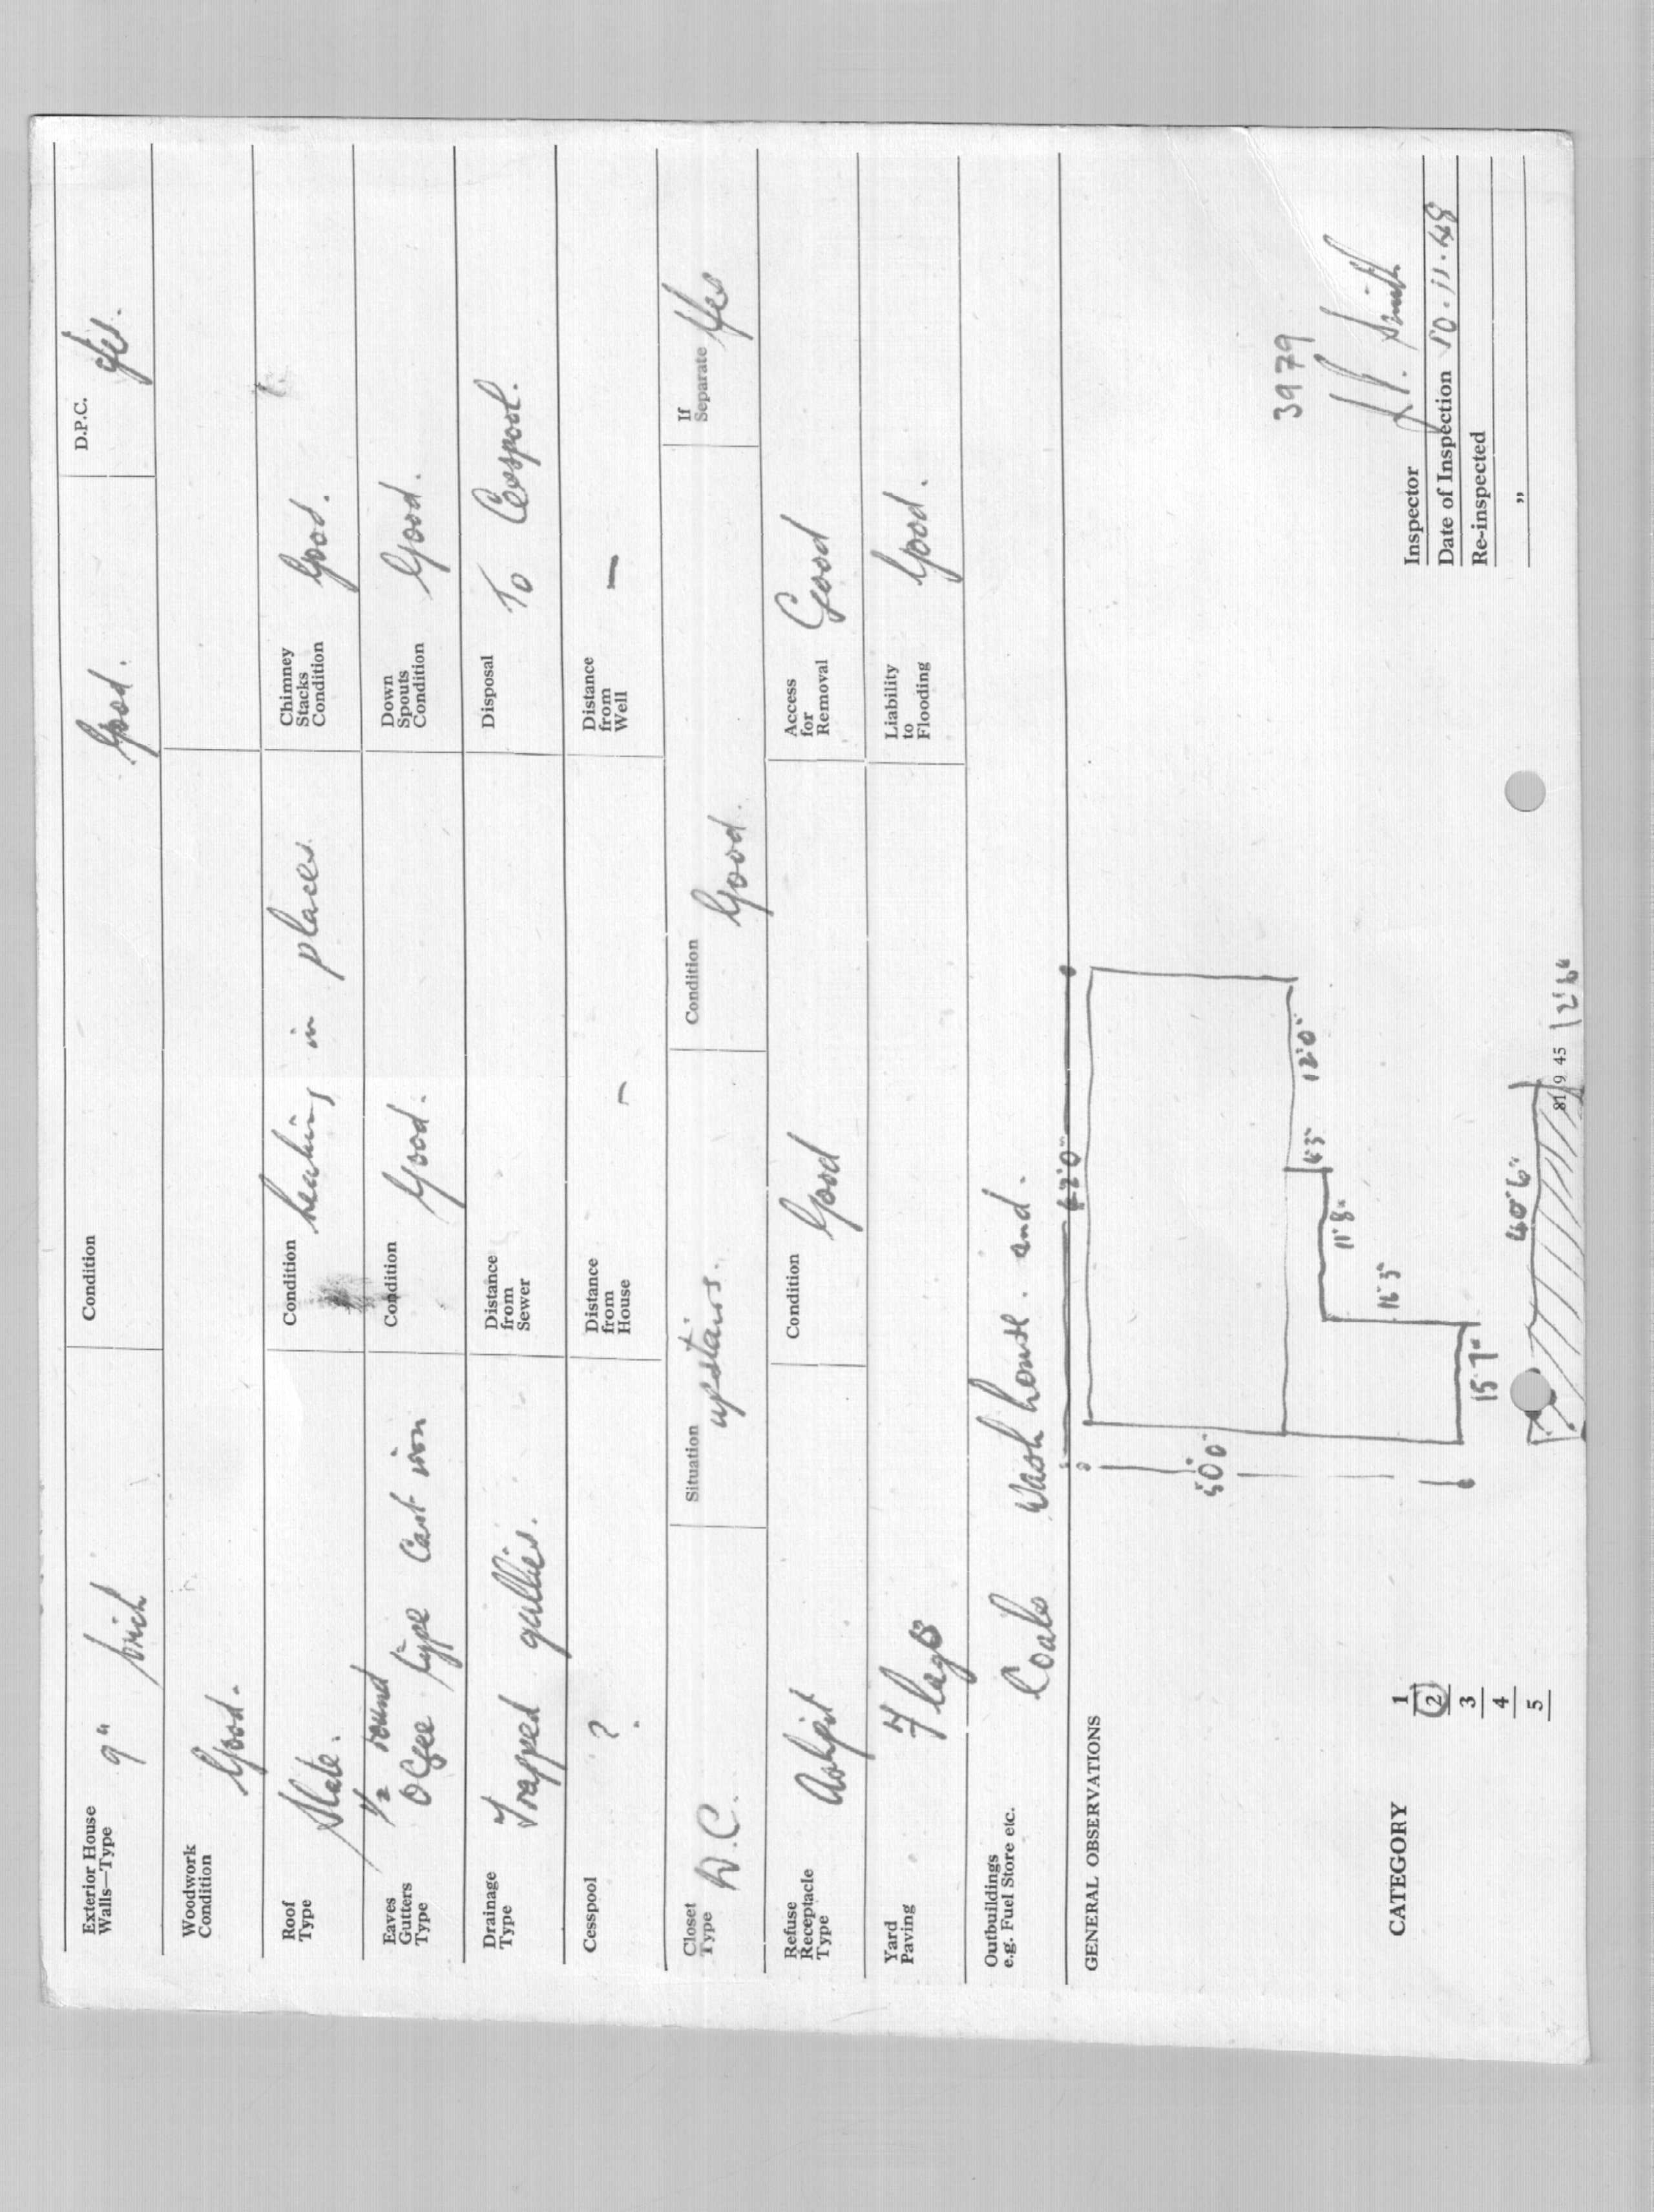 Exterior House Walls—Type 9" brick Condition Good. D.P.C. yes.
Woodwork Condition Good.
Roof Type Slate. Condition leaking in places. Chimney Stacks Condition Good.
Eaves Gutters Type ½ round Ogee type Cast iron Condition Good. Down Spouts Condition Good.
Drainage Type Trapped gullies. Distance from Sewer Disposal To Cesspool.
Cesspool ? Distance from House – Distance from Well –
Closet Type W.C. Situation upstairs. Condition Good. If Separate Yes
Refuse Receptacle Type Ashpit Condition Good Access for Removal Good
Yard Paving Flags Liability to Flooding Good.
Outbuildings e.g. Fuel Store etc. Coals Wash house. and.
GENERAL OBSERVATIONS
42'0"
50'0"
12'0"
4'3"
11'8"
16'3"
15'7"
40'6"
12'6"
3979
CATEGORY 1
2
3
4
5
Inspector Smith
Date of Inspection 10.11.48
Re-inspected
"
81/9 45